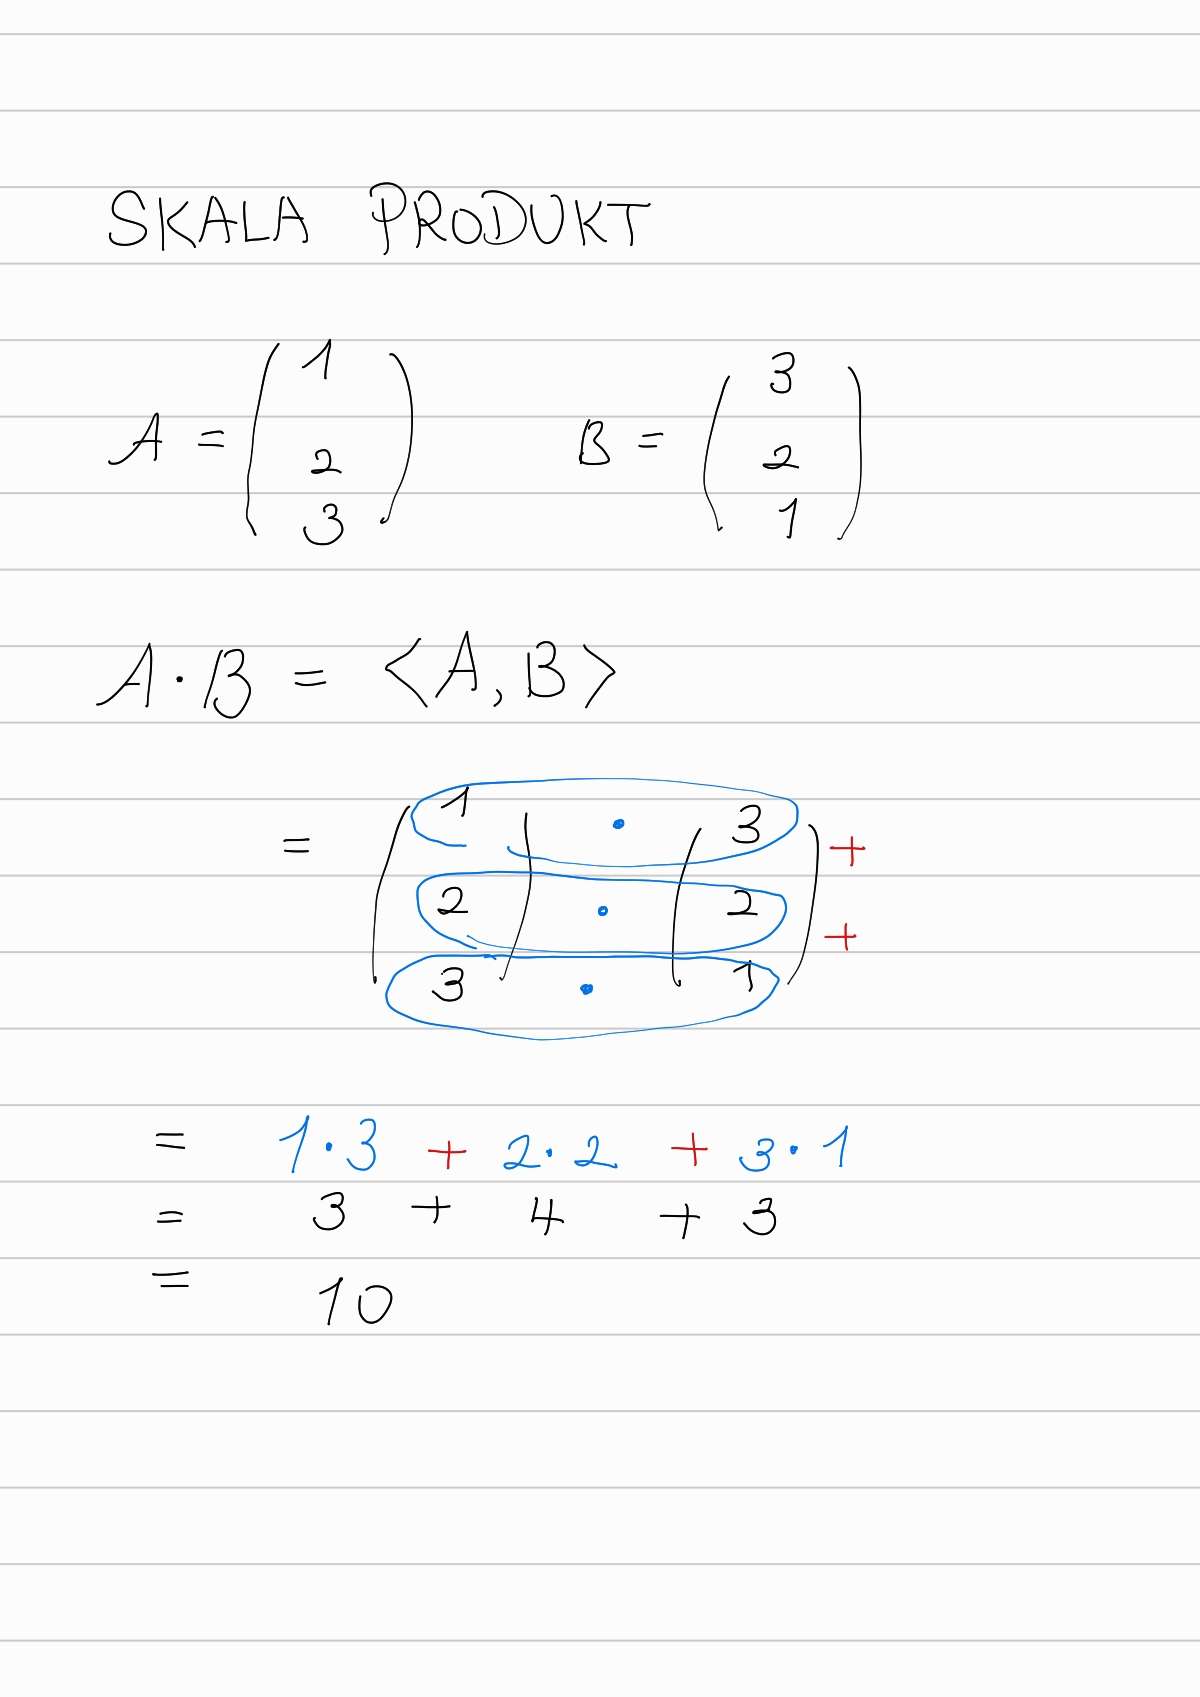 SKALA PRODUKT
A = ( 1 2 3 ) B = ( 3 2 1 )
A · B = <A, B>
= ( 1 ) · ( 3 ) +
2 · 2 +
3 · 1
= 1 · 3 + 2 · 2 + 3 · 1
= 3 + 4 + 3
= 10